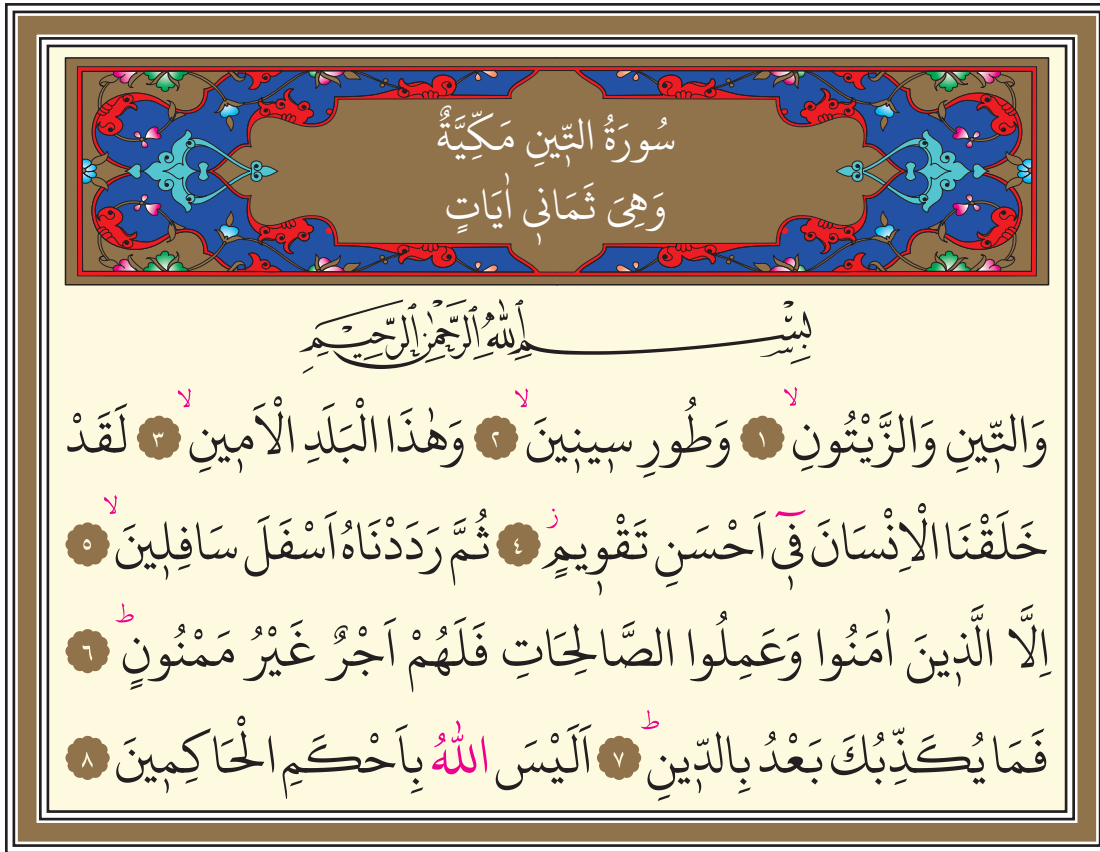 سُورَةُ التّ۪ينِ مَكِّيَّةٌ
وَهِيَ ثَمَان۪ي اٰيَاتٍ
بِسْمِ اللّٰهِ الرَّحْمٰنِ الرَّح۪يمِ
وَالتّ۪ينِ وَالزَّيْتُونِۙ ﴿١﴾ وَطُورِ س۪ين۪ينَۙ ﴿٢﴾ وَهٰذَا الْبَلَدِ الْاَم۪ينِۙ ﴿٣﴾ لَقَدْ
خَلَقْنَا الْاِنْسَانَ ف۪ٓي اَحْسَنِ تَقْو۪يمٍۘز ﴿٤﴾ ثُمَّ رَدَدْنَاهُ اَسْفَلَ سَافِل۪ينَۙ ﴿٥﴾
اِلَّا الَّذ۪ينَ اٰمَنُوا وَعَمِلُوا الصَّالِحَاتِ فَلَهُمْ اَجْرٌ غَيْرُ مَمْنُونٍۜ ﴿٦﴾
فَمَا يُكَذِّبُكَ بَعْدُ بِالدّ۪ينِۜ ﴿٧﴾ اَلَيْسَ اللّٰهُ بِاَحْكَمِ الْحَاكِم۪ينَ ﴿٨﴾